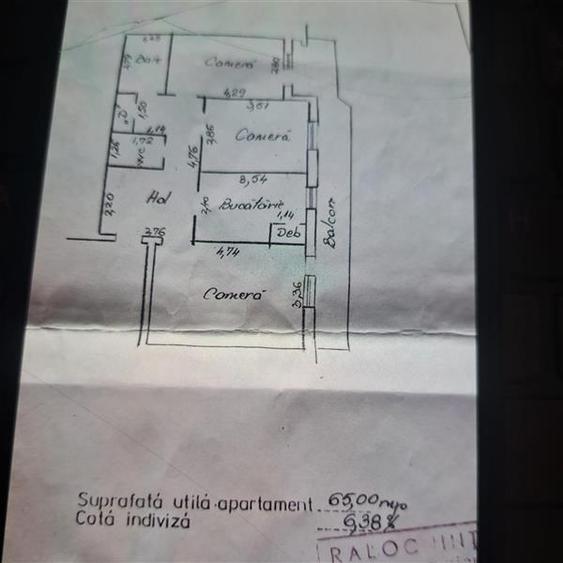 3,25
Cameră
2,80
4,29
3,61
"D"
1,50
1,14
2,86
Cameră
1,72
1,26
WC
4,76
8,54
Hol
2,20
2,40
Bucătărie
1,14
Deb
Balcon
3,76
4,74
Cameră
3,36
Suprafață utilă apartament 65,00 mp
Cotă indiviză 6,38%
RALOC